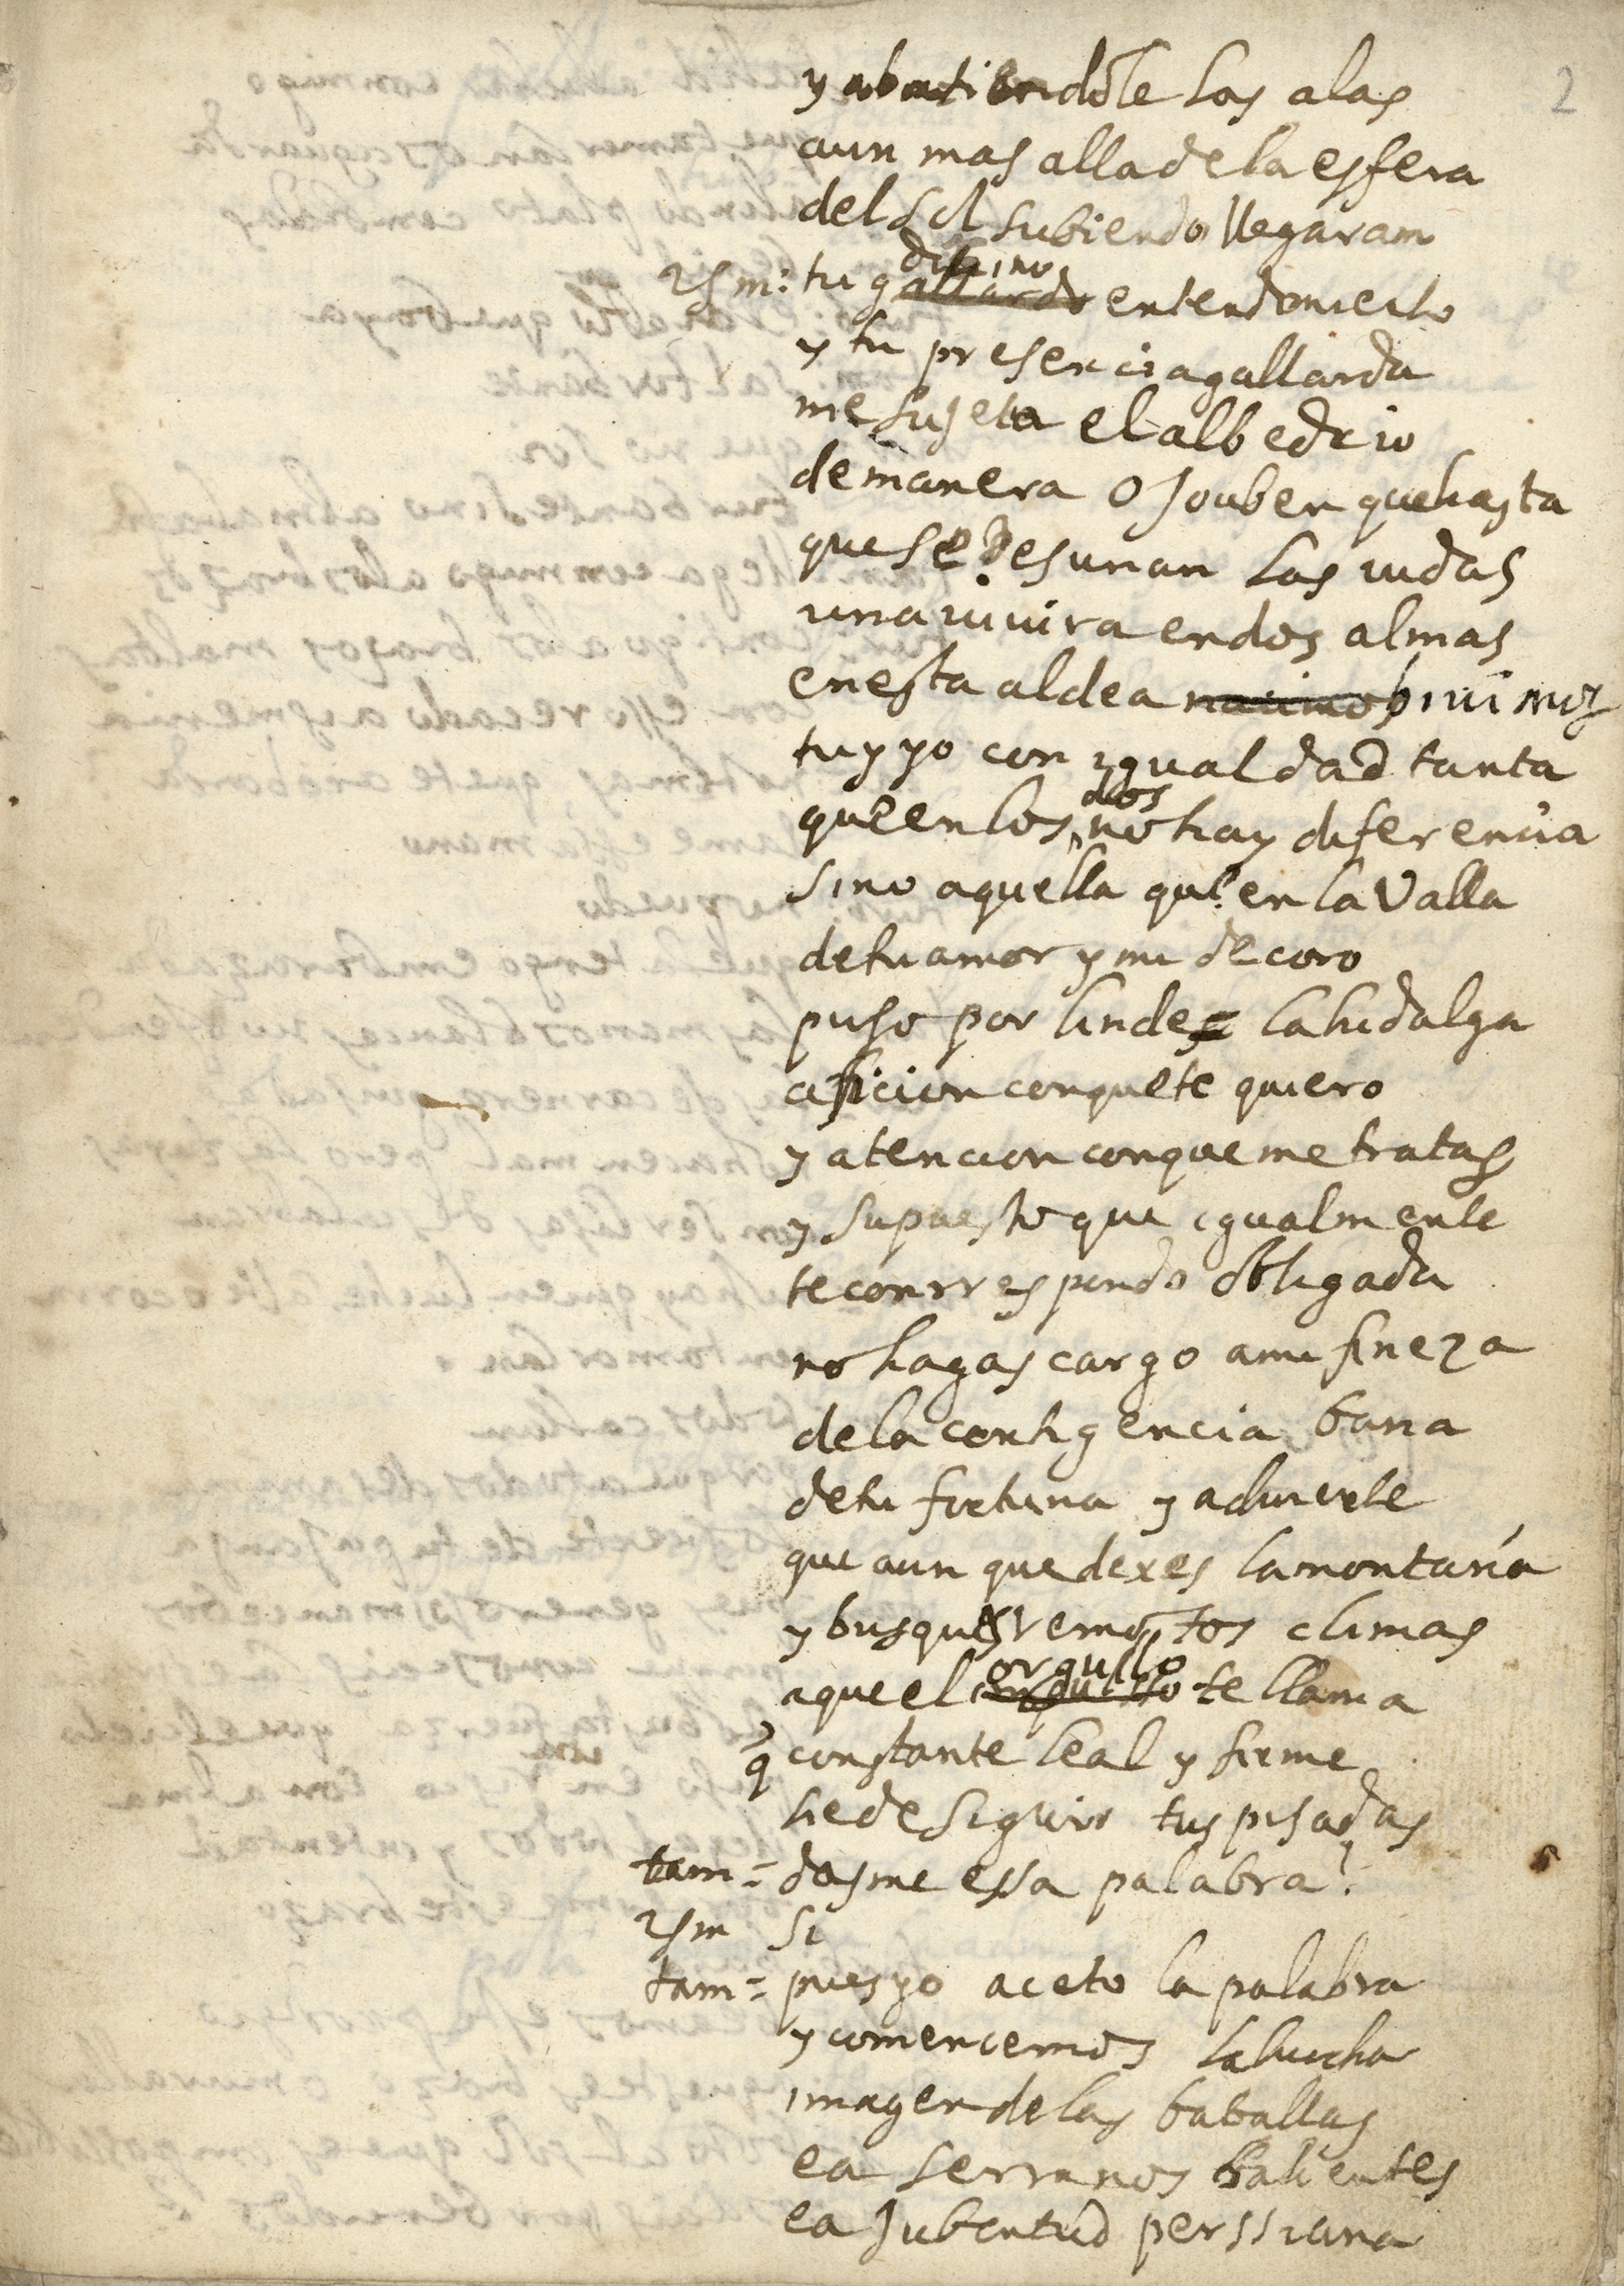 2
y abatiendote las alas
aun mas alla de la esfera
del sol subiendo llegaram
ysm: tu gallardo divino entendimiento
y tu presencia gallarda
me sujeta el albedrio
de manera o jouben que hasta
que se desunan las vidas
una vivira en dos almas
en esta aldea nacimos bivimos
tu y yo con ygualdad tanta
que en los dos no hay diferencia
sino aquella que en la valla
de tu amor y mi decoro
puso por linde la hidalga
aficion con que te quiero
y atencion con que me tratas
y supuesto que igualmente
te corrrespondo obligada
no hagas cargo a mi fineza
de la contigencia bana
de tu fortuna y advierte
que aun que dexes la montaña
y busques remotos climas
a que el orgullo te llama
q constante leal y firme
he de siguir tus pisadas
tam= dasme essa palabra?
ysm si
tam= pues yo aceto la palabra
y comencemos la lucha
imagen de las batallas
ea serranos balientes
ea jubentud perssiana